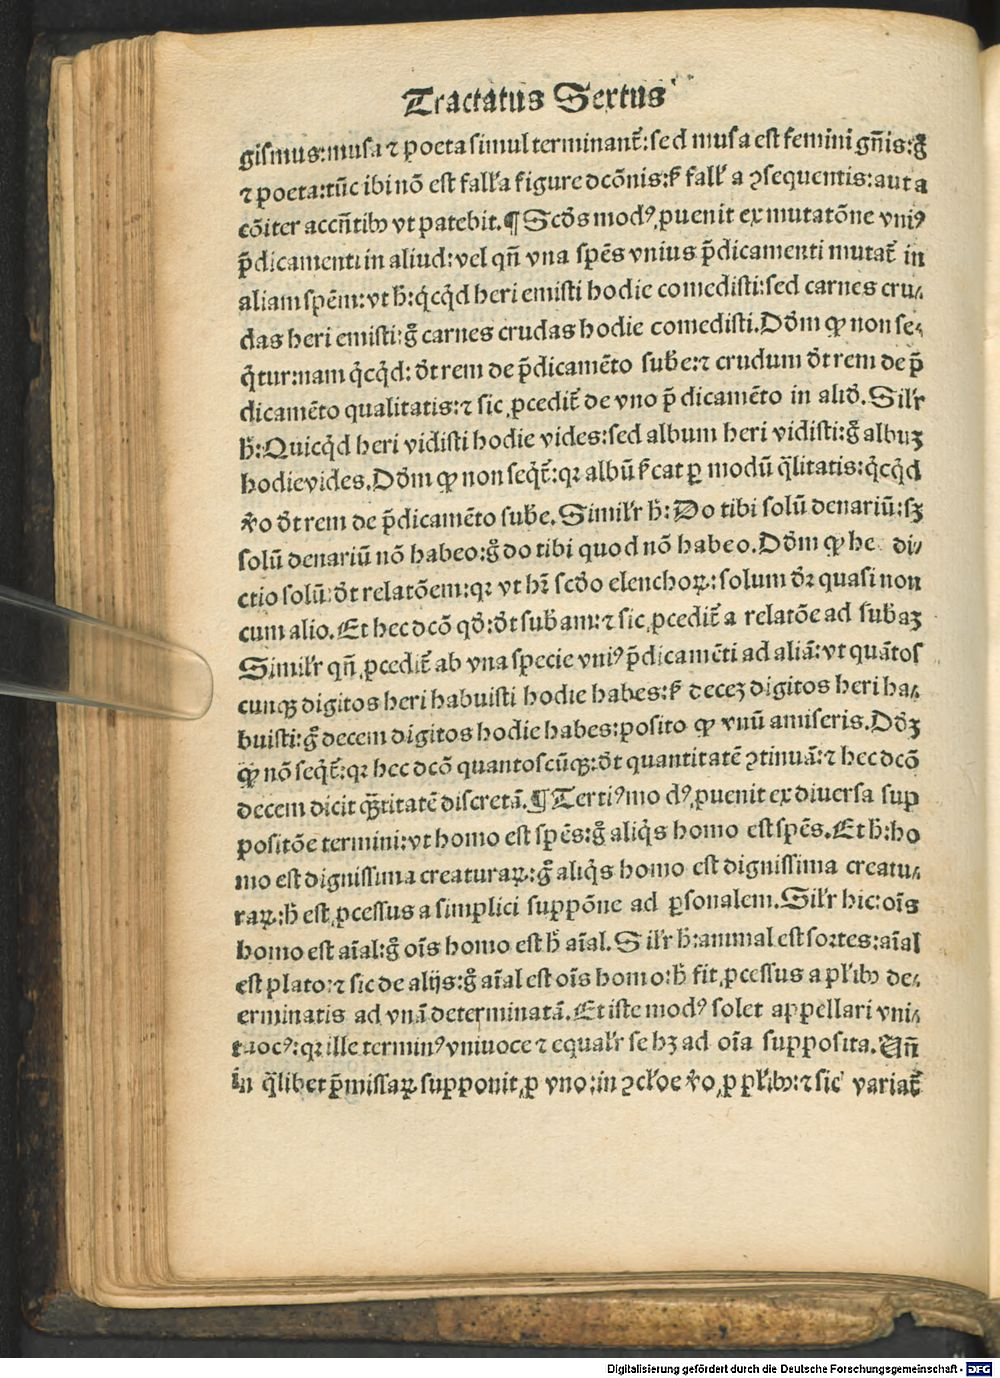 Tractatus Sextus
gismus:musa ⁊ poeta simul terminant᷑:sed musa est femini gn̄is:g̊
⁊ poeta:tūc ibi nō est fall'a figure dcōnis:s̄ fall'a ꝯsequentis:aut a
cōiter accn̄tibꝰ vt patebit.¶ Scd's modꝰ ꝓuenit ex mutatōne vniꝰ
p̄dicamenti in aliud:vel qn̄ vna spēs vnius p̄dicamenti mutat᷑ in
aliam spēm:vt h̄:q̇cq̇d heri emisti hodie comedisti:sed carnes cru⸗
das heri emisti:g̊ carnes crudas hodie comedisti.Dd'm ꝙ non se⸗
q̇tur:nam q̇cq̇d:d't rem de p̄dicamēto sub'e:⁊ crudum d't rem de p̄
dicamēto qualitatis:⁊ sic ꝓcedit᷑ de vno p̄dicamēto in aliđ.Sil'r
h̄:Quicq̇d heri vidisti hodie vides:sed album heri vidisti:g̊ albuꝫ
hodie vides.Dd'm ꝙ non seq̇t᷑:qꝛ albū s̄cat ꝑ modū q̄litatis:q̇cq̇d
v̊o d't rem de p̄dicamēto sub'e.Simil'r h̄:Do tibi solū denariū:sꝫ
solū denariū nō habeo:g̊ do tibi quod nō habeo.Dd'm ꝙ hec di⸗
ctio solū:d't relatōem:qꝛ vt hr̄ scd'o elenchoꝝ:solum d'r quasi non
cum alio.Et hec dcō qđ:d't sub'am:⁊ sic ꝓcedit᷑ a relatōe ad sub'aꝫ
Simil'r qn̄ ꝓcedit᷑ ab vna specie vniꝰ p̄dicamēti ad aliā:vt quātos
cunqꝫ digitos heri habuisti hodie habes:s̄ deceꝫ digitos heri ha⸗
buisti:g̊ decem digitos hodie habes:posito ꝙ vnū amiseris.Dd'ꝫ
ꝙ nō seq̇t᷑:qꝛ hec dcō quantoscūqꝫ:d't quantitatē ꝯtinuā:⁊ hec dcō
decem dicit q̄titatē discretā.¶ Tertiꝰ modꝰ ꝓuenit ex diuersa sup
positōe termini:vt homo est spēs:g̊ aliq̇s homo est spēs.Et h̄:ho
mo est dignissima creaturaꝝ:g̊ aliq̇s homo est dignissima creatu⸗
raꝝ:h̄ est ꝓcessus a simplici suppōne ad ꝑsonalem.Sil'r hic:oīs
homo est aīal:g̊ oīs homo est h̄ aīal.Sil'r h̄:animal est sortes:aīal
est plato:⁊ sic de alijs:g̊ aīal est oīs homo:h̄ fit ꝓcessus a pl'ibꝰ de⸗
erminatis ad vnā determinatā.Et iste modꝰ solet appellari vni⸗
uocꝰ:qꝛ ille terminꝰ vniuoce ⁊ equal'r se hꝫ ad oīa supposita.Un̄
in q̄libet p̄missaꝝ supponit ꝓ vno:in ꝯcl'oe v̊o ꝓ pl'ibꝰ:⁊ sic variat᷑
Digitalisierung gefördert durch die Deutsche Forschungsgemeinschaft - DFG